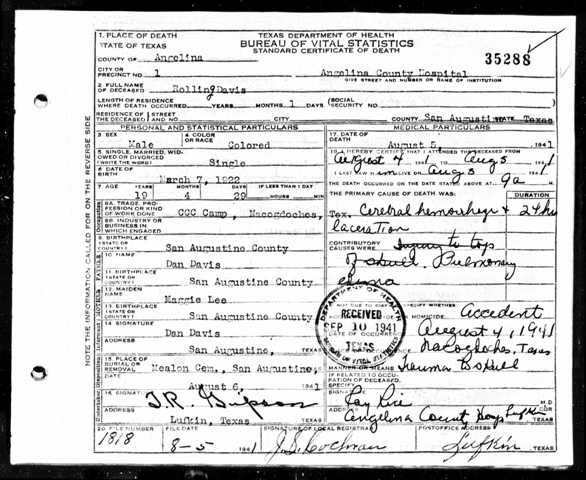 1. PLACE OF DEATH
STATE OF TEXAS
TEXAS DEPARTMENT OF HEALTH
BUREAU OF VITAL STATISTICS
STANDARD CERTIFICATE OF DEATH
35288
COUNTY OF Angelina
CITY OR PRECINCT NO. 1 Angelina County Hospital
GIVE STREET AND NUMBER OR NAME OF INSTITUTION
2. FULL NAME OF DECEASED Rolling Davis
LENGTH OF RESIDENCE WHERE DEATH OCCURRED YEARS MONTHS 1 DAYS (SOCIAL SECURITY NO.
RESIDENCE OF THE DECEASED STREET AND NO. COUNTY San Augustine STATE Texas
PERSONAL AND STATISTICAL PARTICULARS
MEDICAL PARTICULARS
3. SEX Male
4. COLOR OR RACE Colored
17. DATE OF DEATH August 5, 1941
5. SINGLE, MARRIED, WIDOWED OR DIVORCED (WRITE THE WORD) Single
18. I HEREBY CERTIFY THAT I ATTENDED THE DECEASED FROM August 4 1941 TO Aug 5 1941
I LAST SAW HIM ALIVE ON Aug 5 1941
6. DATE OF BIRTH March 7, 1922
THE DEATH OCCURRED ON THE DATE STATED ABOVE AT 9a M.
7. AGE 19 4 29 IF LESS THAN 1 DAY HOURS MIN
THE PRIMARY CAUSE OF DEATH WAS: DURATION
8A. TRADE, PROFESSION OR KIND OF WORK DONE CCC Camp, Nacogdoches, Tex.
Cerebral hemorrhage & laceration 24 hrs
8B. INDUSTRY OR BUSINESS IN WHICH ENGAGED
CONTRIBUTORY CAUSES WERE: Injury to top of skull. Pulmonary edema
9. BIRTHPLACE (STATE OR COUNTRY) San Augustine County
10. NAME Dan Davis
11. BIRTHPLACE (STATE OR COUNTRY) San Augustine County
12. MAIDEN NAME Maggie Lee
13. BIRTHPLACE (STATE OR COUNTRY) San Augustine County
Accident
DATE OF OCCURRENCE August 4, 1941
Nacogdoches, Texas
MANNER OR MEANS Trauma to skull
DEPARTMENT OF HEALTH
RECEIVED
SEP 10 1941
TEXAS
BUREAU OF VITAL STATISTICS
14. SIGNATURE Dan Davis
ADDRESS San Augustine,
15. PLACE OF BURIAL OR REMOVAL San Augustine
August 6, 1941
IF RELATED TO OCCUPATION OF DECEASED, SPECIFY
16. SIGNATURE T.R.
ADDRESS Lufkin, Texas TEXAS
SIGNATURE M.D.
ADDRESS Angelina County Hosp Lufkin TEXAS
20. FILE NUMBER 1818
FILE DATE 8-5 1941
SIGNATURE OF LOCAL REGISTRAR J.S. Cochran
POSTOFFICE ADDRESS Lufkin TEXAS
NOTE THE INFORMATION CALLED FOR ON THE REVERSE SIDE